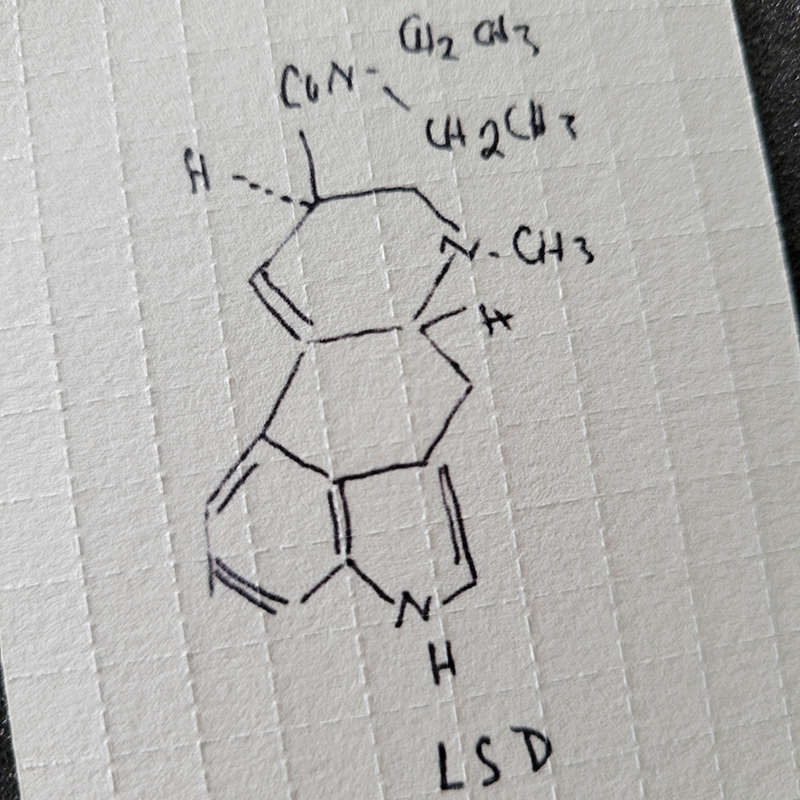 CH2 CH3
CON
CH2CH3
H
N-CH3
H
N
H
LSD